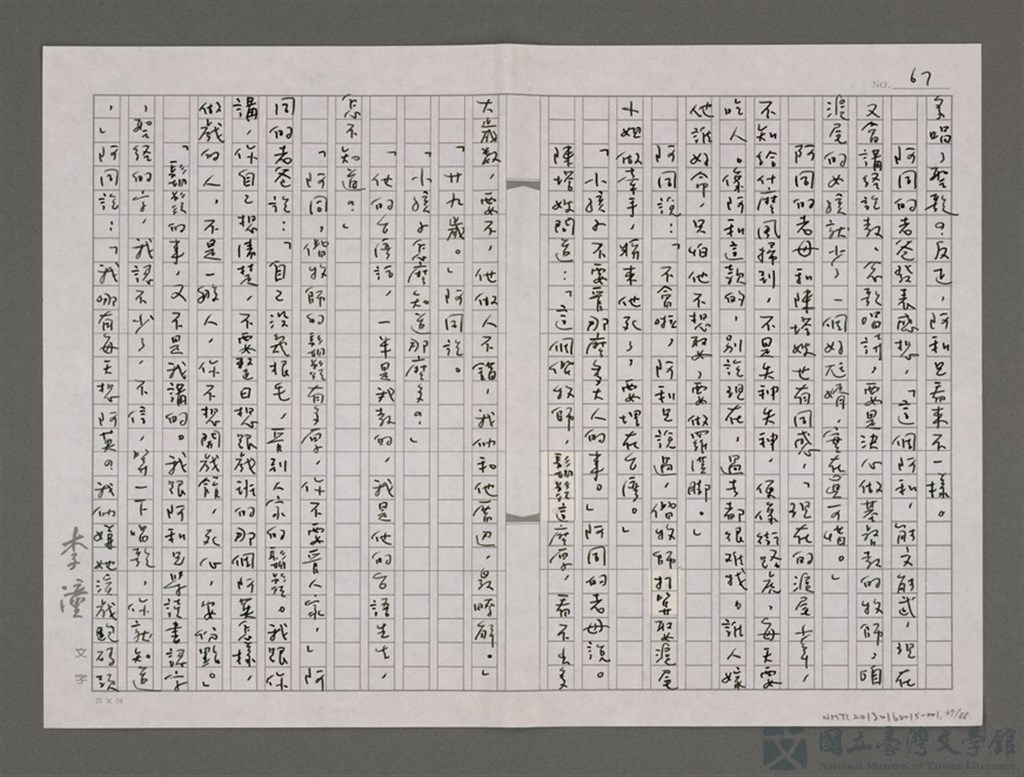 NO. 67
多唱了聖歌？反正，阿和兄看來不一樣。
阿同的老爸發表感想，「這個阿和，能文能武，現在
又會講經說教、念歌唱詩，要是決心做基督教的牧師，咱
滬尾的女孩就少了一個好尪婿，實在是可惜。」
阿同的老母和陳塔嫂也有同感，「現在的滬尾少年，
不知給什麼風掃到，不是失神失神，便像街路虎，每天要
吃人。像阿和這款的，別說現在，過去都很難找。誰人嫁
他誰好命，只怕他不想娶，要做羅漢腳。」
阿同說：「不會啦，阿和兄說過，偕牧師打算娶滬尾
小姐做牽手，將來他死了，要埋在台灣。」
「小孩子不要管那麼多大人的事。」阿同的老母說。
陳塔嫂問道：「這個偕牧師，鬍鬚這麼厚，看不出多
大歲數，要不，他做人不錯，我們和他厝邊，最了解。」
「廿九歲。」阿同說。
「小孩子怎麼知道那麼多？」
「他的台灣話，一半是我教的，我是他的台語先生，
怎不知道？」
「阿同，偕牧師的鬍鬚有多厚，你不要管人家，」阿
同的老爸說：「自己沒幾根毛，管別人家的鬍鬚。我跟你
講，你自己想清楚，不要整日想跟戲班的那個阿英怎樣，
做戲的人，不是一般人，你不想開戲館，死心，安份點。」
「鬍鬚的事，又不是我講的。我跟阿和兄學讀書認字
，聖經的字，我認不少了，不信，等一下唱歌，你就知道
，」阿同說：「我哪有每天想阿英？我們嫌她演戲跑碼頭
李潼
文字
NMTL20130160015-001, 69/88
國立臺灣文學館
National Museum of Taiwan Literature